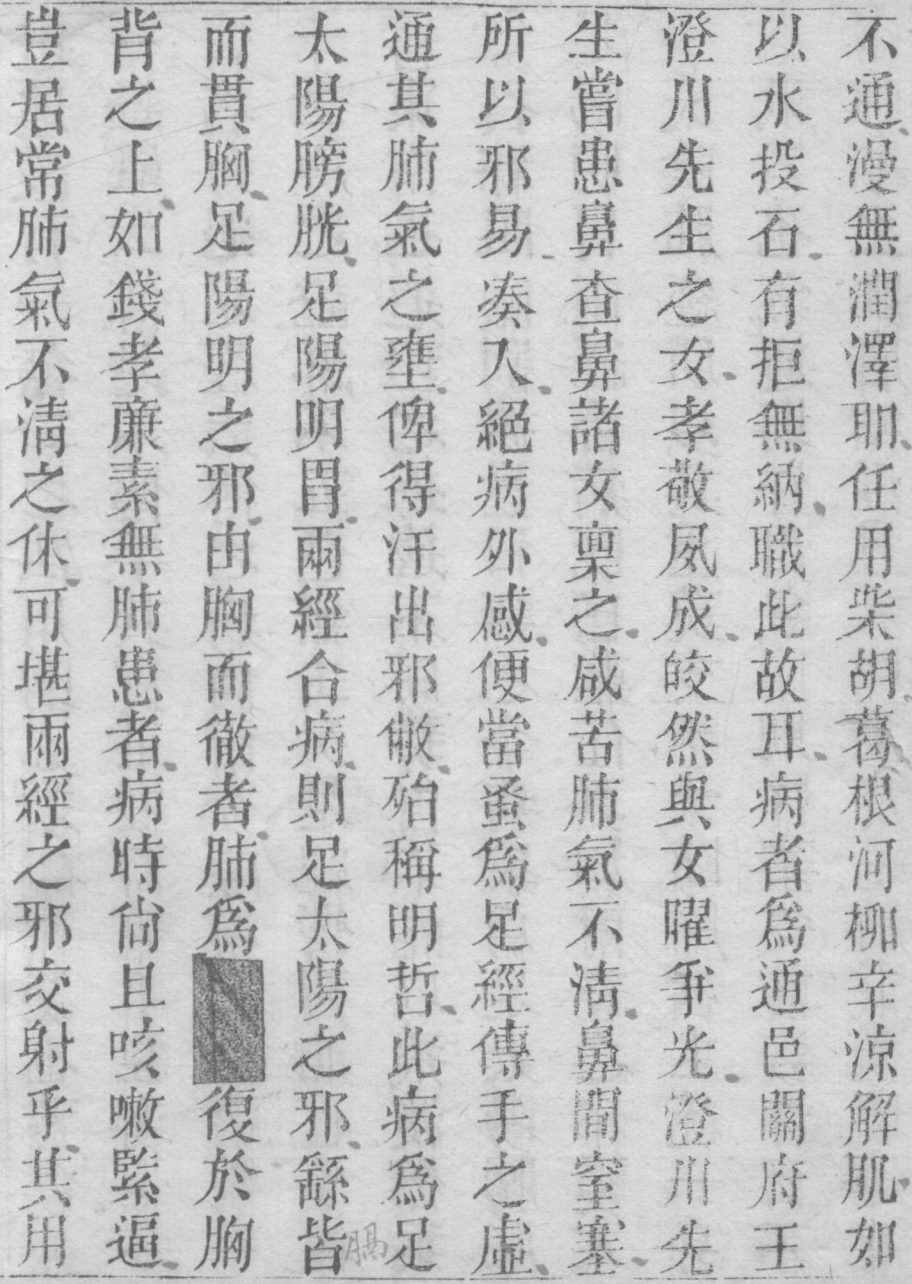 不通漫無潤澤耶任用柴胡葛根河柳辛涼解肌如
以水投石有拒無納職此故耳病者為通邑關府王
澄川先生之女孝敬夙成皎然與女曜爭光澄川先
生嘗患鼻查鼻諸女稟之咸苦肺氣不清鼻間窒塞
所以邪易湊入絕病外感便當蚤為足經傳手之虛
通其肺氣之壅俾得汗出邪敝殆稱明哲此病為足
太陽膀胱足陽明胃兩經合病則足太陽之邪繇皆
而貫胸足陽明之邪由胸而徹者肺為復於胸
背之上如錢孝廉素無肺患者病時尚且咳嗽緊逼
豈居常肺氣不清之体可堪兩經之邪交射乎其用